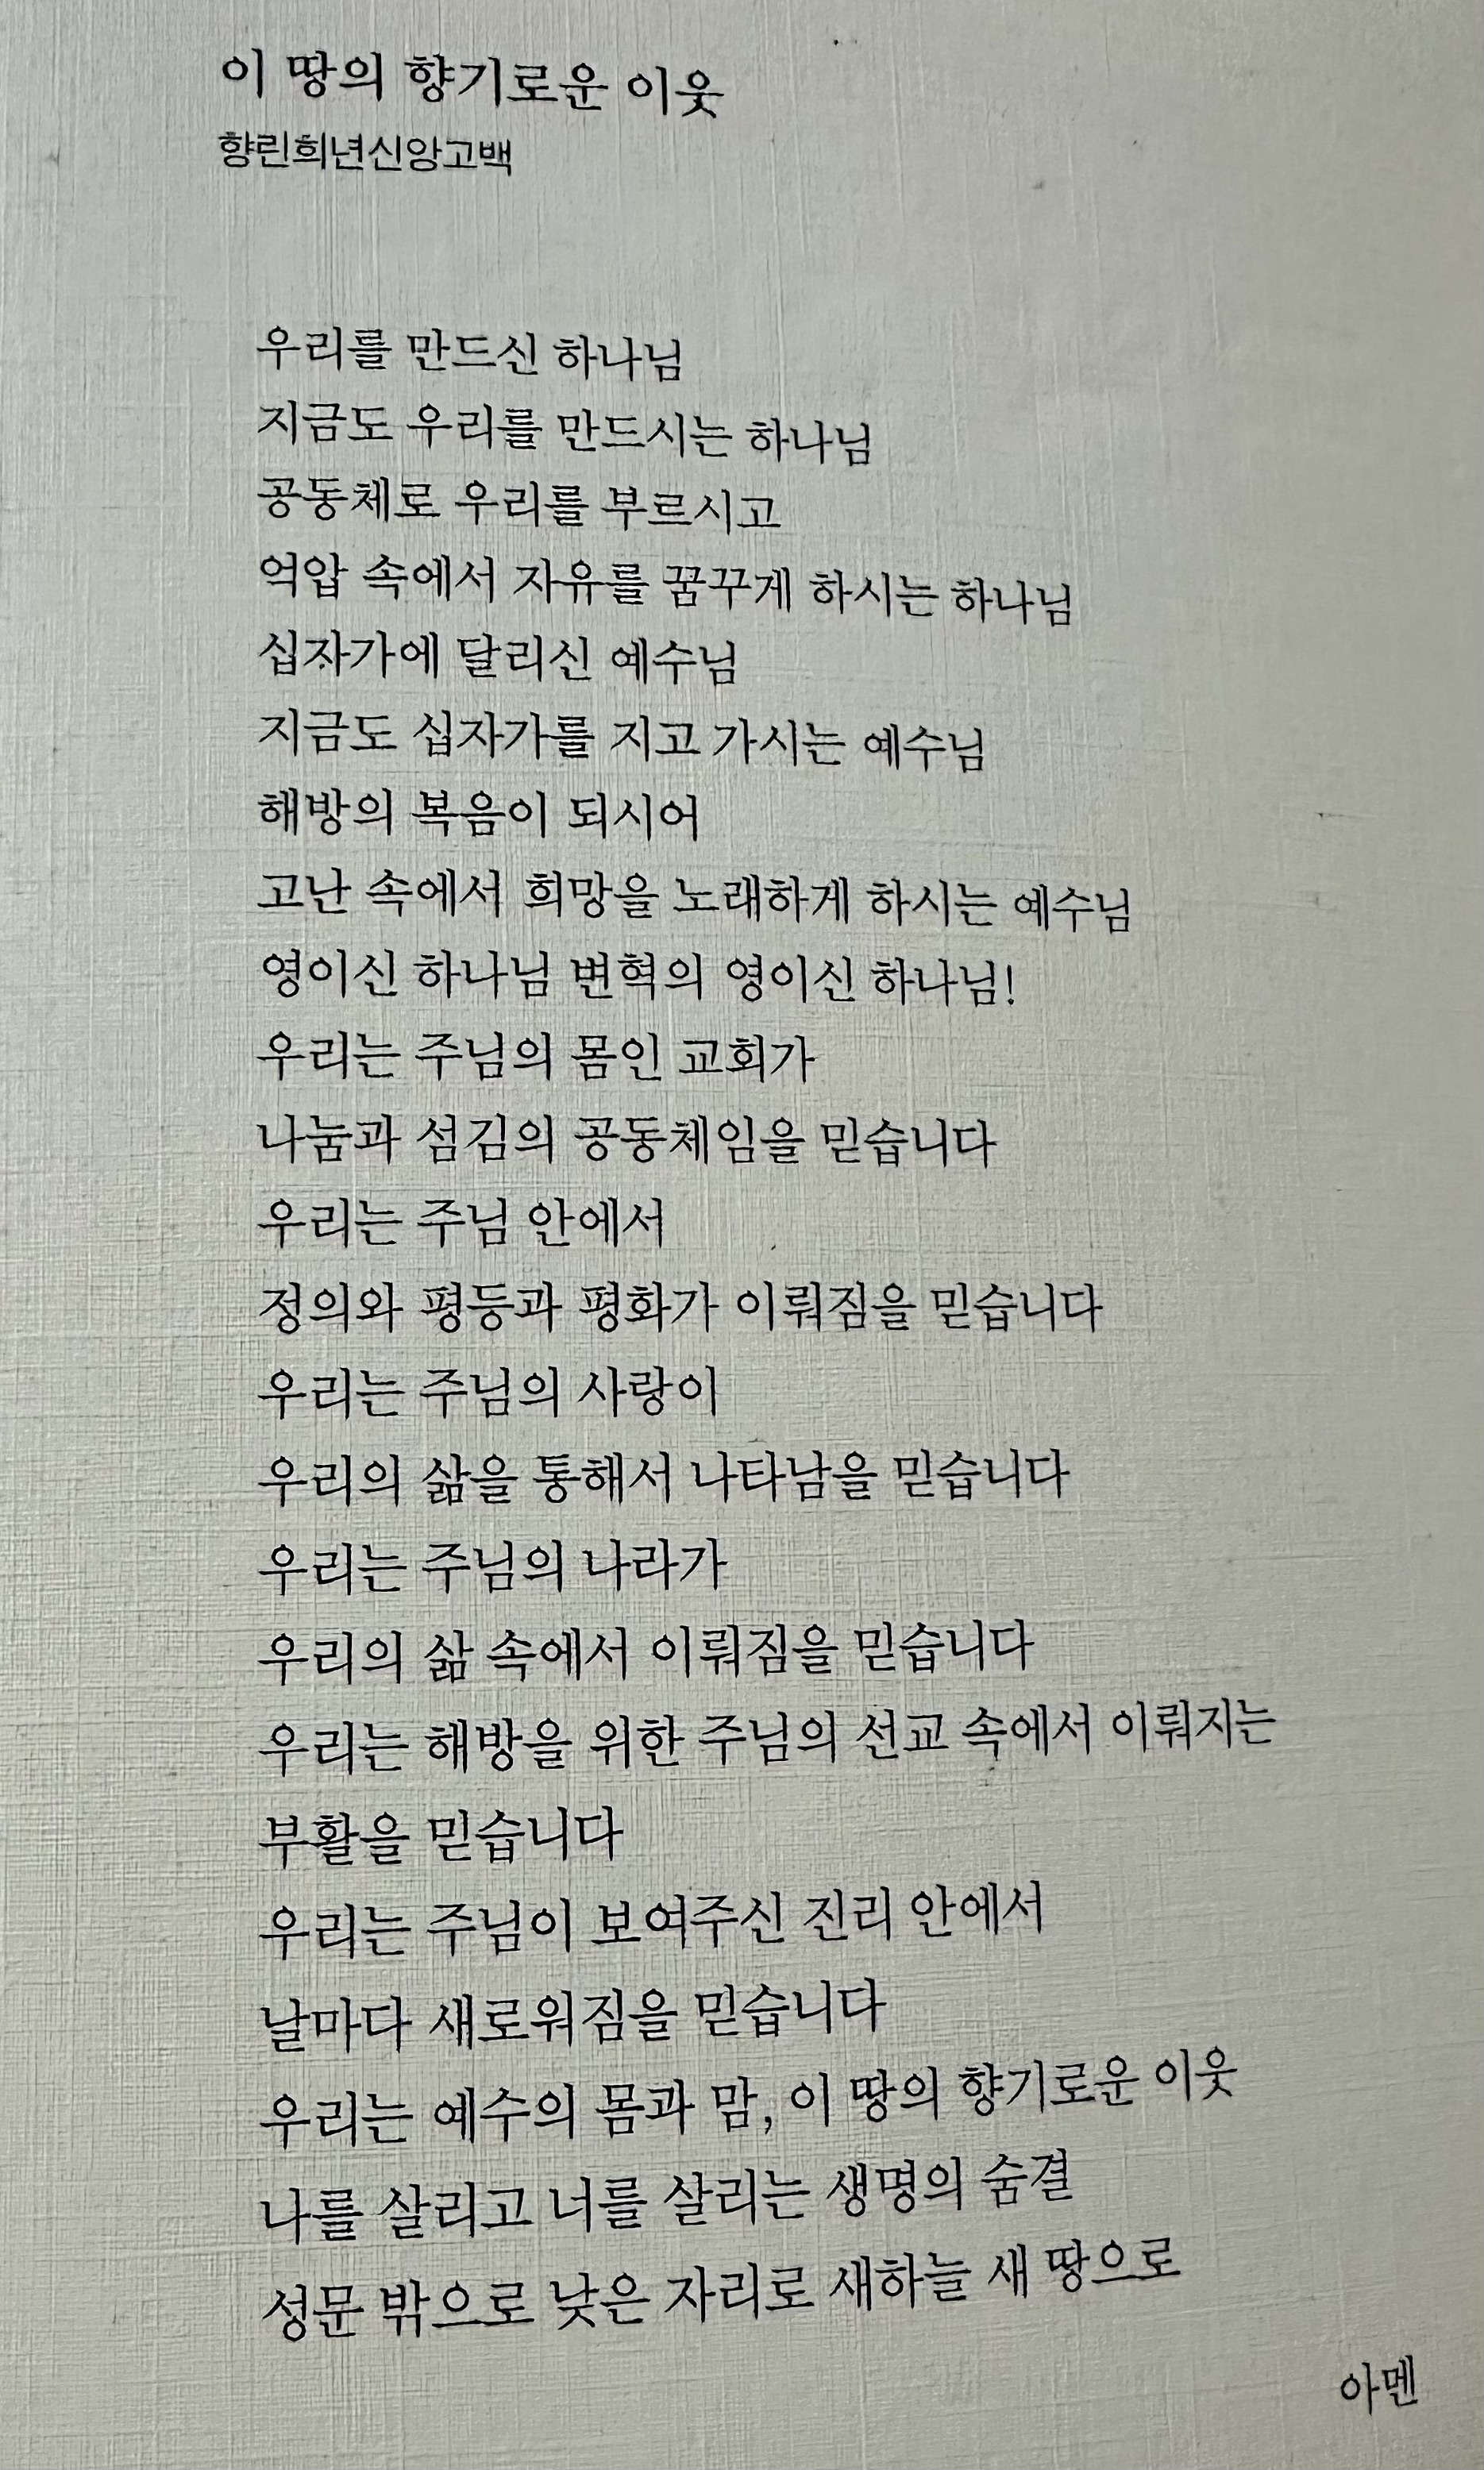 이 땅의 향기로운 이웃
향린희년신앙고백
우리를 만드신 하나님
지금도 우리를 만드시는 하나님
공동체로 우리를 부르시고
억압 속에서 자유를 꿈꾸게 하시는 하나님
십자가에 달리신 예수님
지금도 십자가를 지고 가시는 예수님
해방의 복음이 되시어
고난 속에서 희망을 노래하게 하시는 예수님
영이신 하나님 변혁의 영이신 하나님!
우리는 주님의 몸인 교회가
나눔과 섬김의 공동체임을 믿습니다
우리는 주님 안에서
정의와 평등과 평화가 이뤄짐을 믿습니다
우리는 주님의 사랑이
우리의 삶을 통해서 나타남을 믿습니다
우리는 주님의 나라가
우리의 삶 속에서 이뤄짐을 믿습니다
우리는 해방을 위한 주님의 선교 속에서 이뤄지는
부활을 믿습니다
우리는 주님이 보여주신 진리 안에서
날마다 새로워짐을 믿습니다
우리는 예수의 몸과 맘, 이 땅의 향기로운 이웃
나를 살리고 너를 살리는 생명의 숨결
성문 밖으로 낮은 자리로 새하늘 새 땅으로
아멘